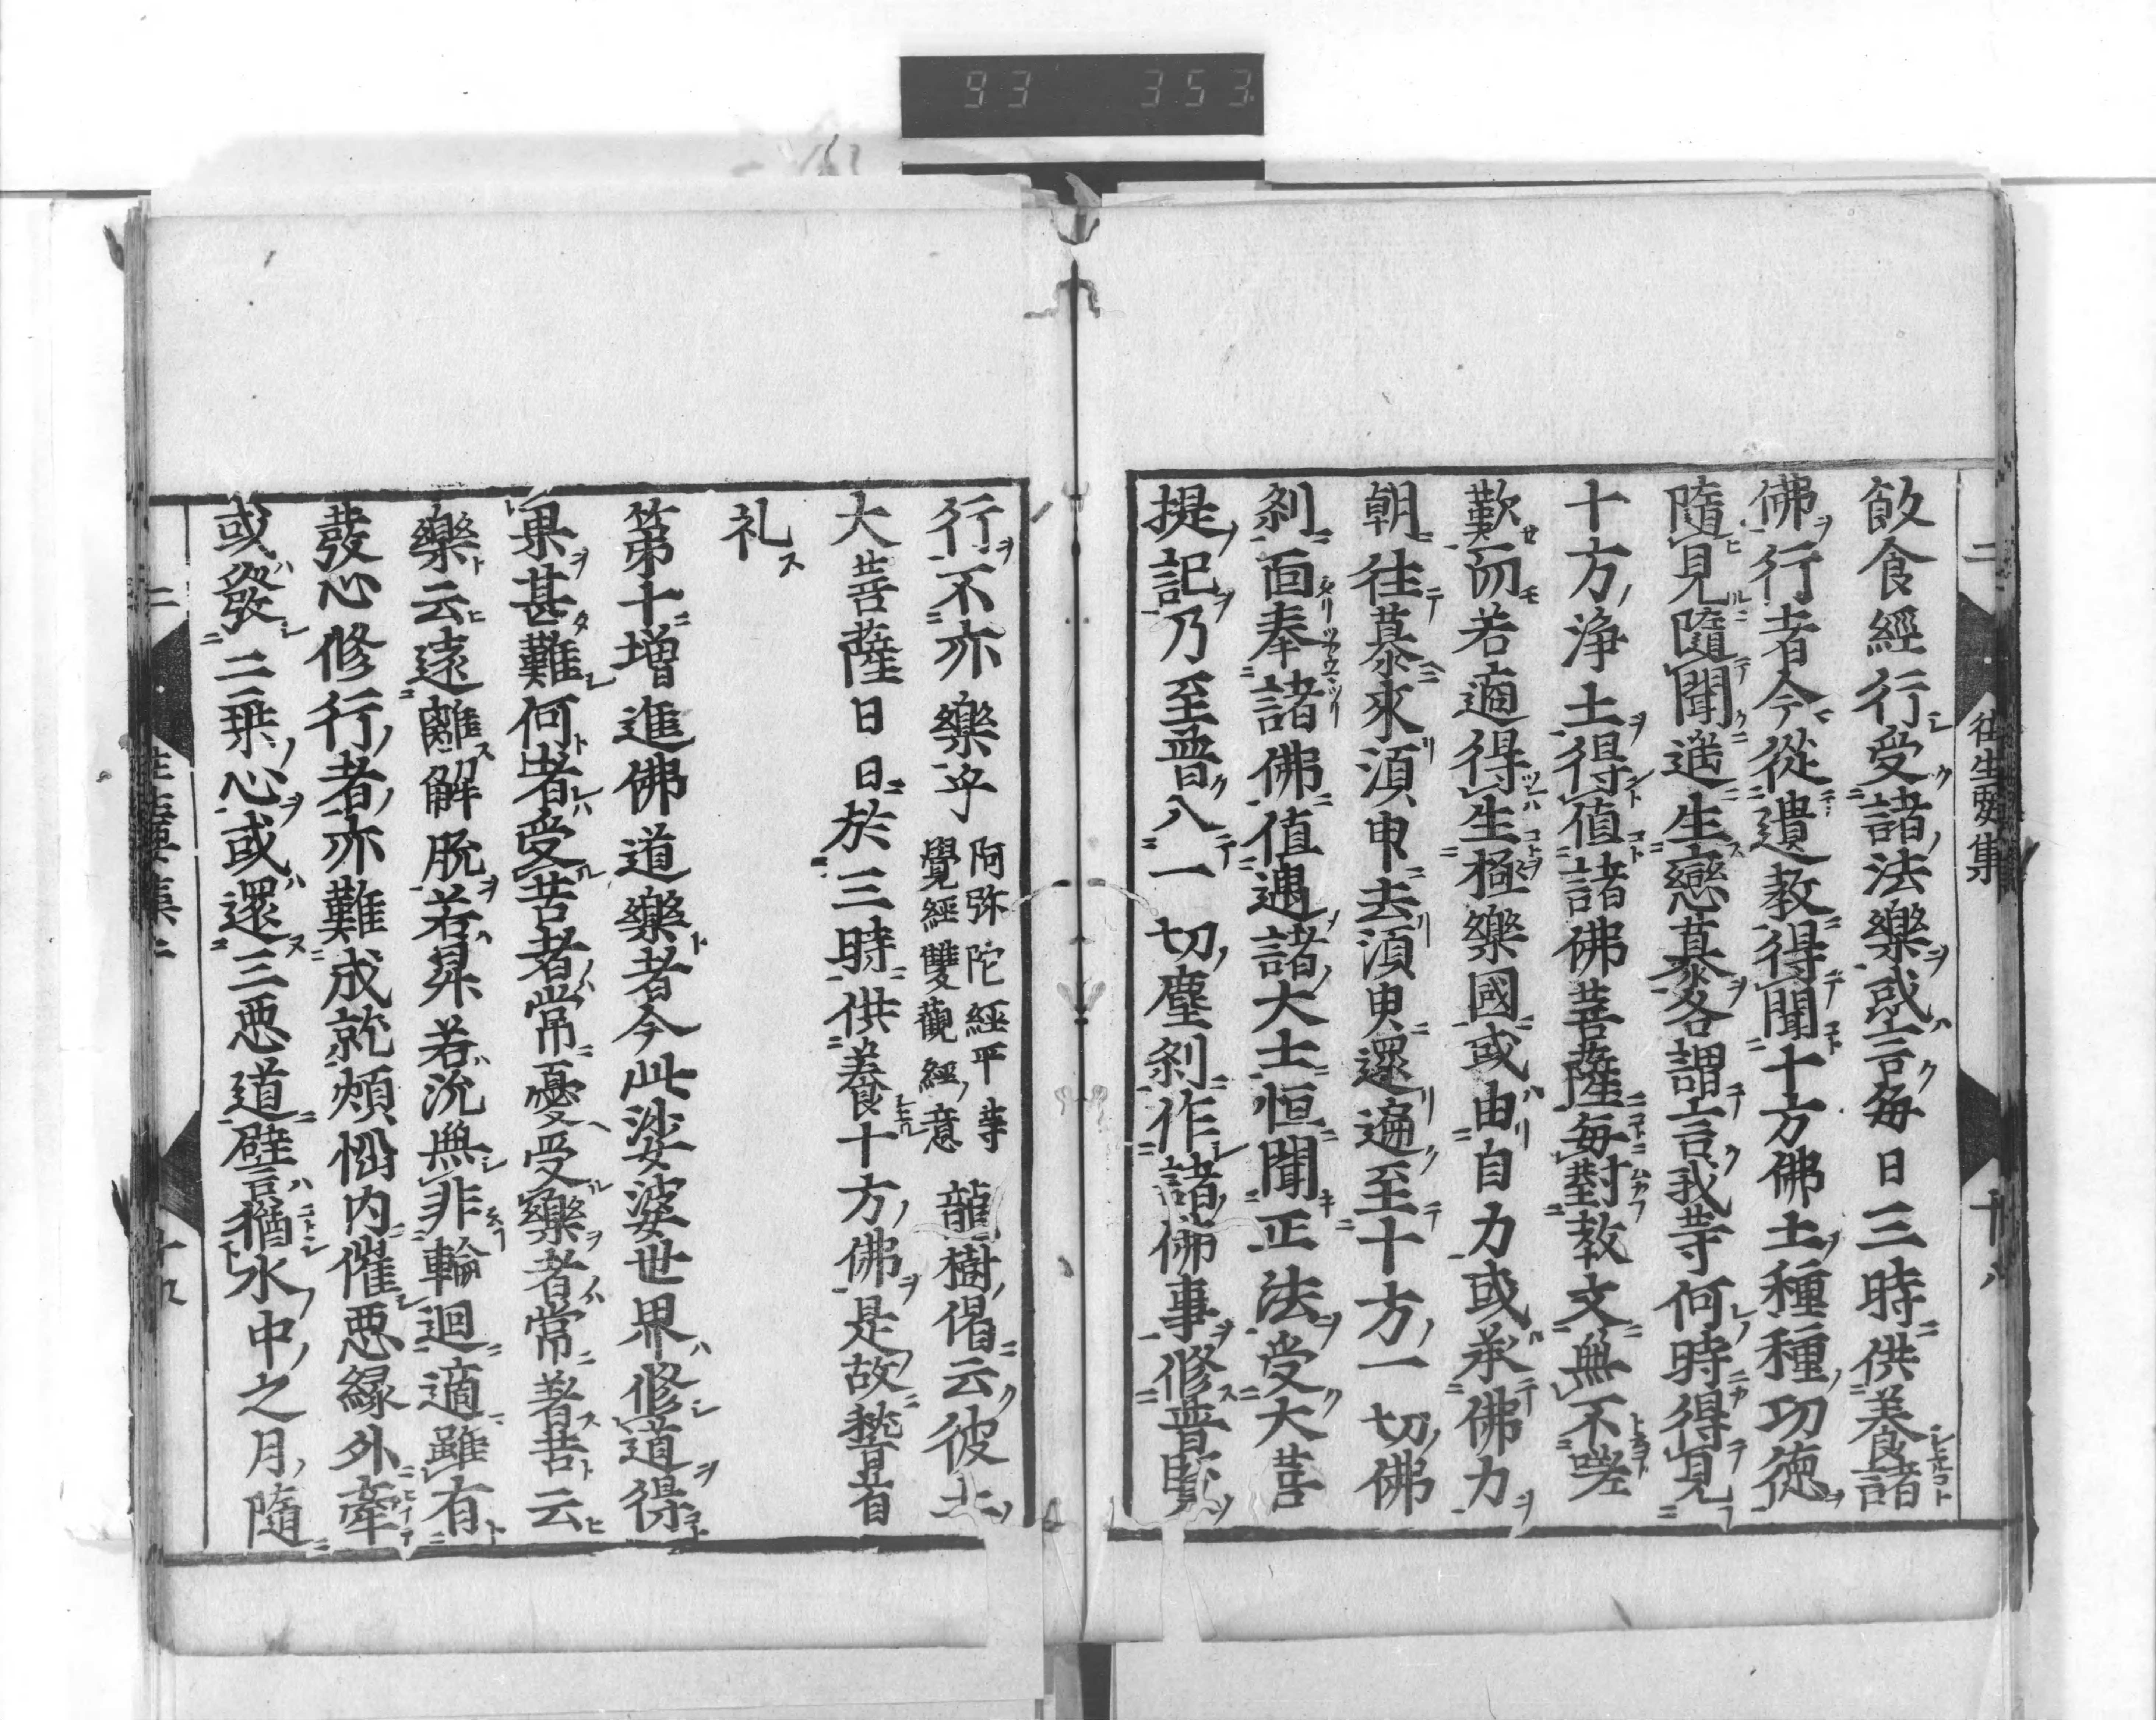 93 353
二 往生要集 十八
飲食經行受諸法樂或言毎日三時供養諸
佛行者今從遺教得聞十方佛土種種功徳
隨見隨聞遥生戀慕各謂言我等何時得見
十方淨土得值諸佛菩薩毎對教文無不嗟
歎而若適得生極樂國或由自力或承佛力
朝往暮來須臾去須臾還遍至十方一切佛
刹面奉諸佛值遇諸大士恒聞正法受大菩
提記乃至普入一切塵刹作諸佛事修普賢
行不亦樂乎 阿弥陀經平等覺經雙觀經意 龍樹偈云彼土
大菩薩日日於三時供養十方佛是故稽首
礼
第十増進佛道樂者今此娑婆世界修道得
果甚難何者受苦者常憂受樂者常著苦云
樂云遠離解脱若昇若沉無非輪迴適雖有
發心修行者亦難成就煩惱内催惡縁外牽
或發二乗心或還三惡道譬猶水中之月隨
二 往生要集二 十九